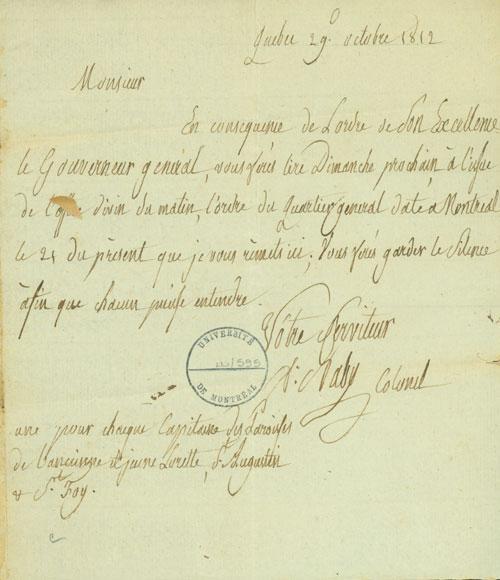 Quebec 29.º octobre 1812
Monsieur
En consequence de L'ordre de Son Excellence
le Gouverneur general, vous ferés lire Dimanche prochain à l'issue
de l'off: divin du matin, l'ordre du Quartier general daté à Montreal
le 21 du present que je vous remets ici; Vous ferés garder le Silence
afin que chacun puisse entendre.
Votre Serviteur
Naby Colonel
UNIVERSITÉ
DE MONTREAL
une pour chaque Capitaine des Paroisses
de L'ancienne & jeune Lorette, St Augustin
& St. Foy.